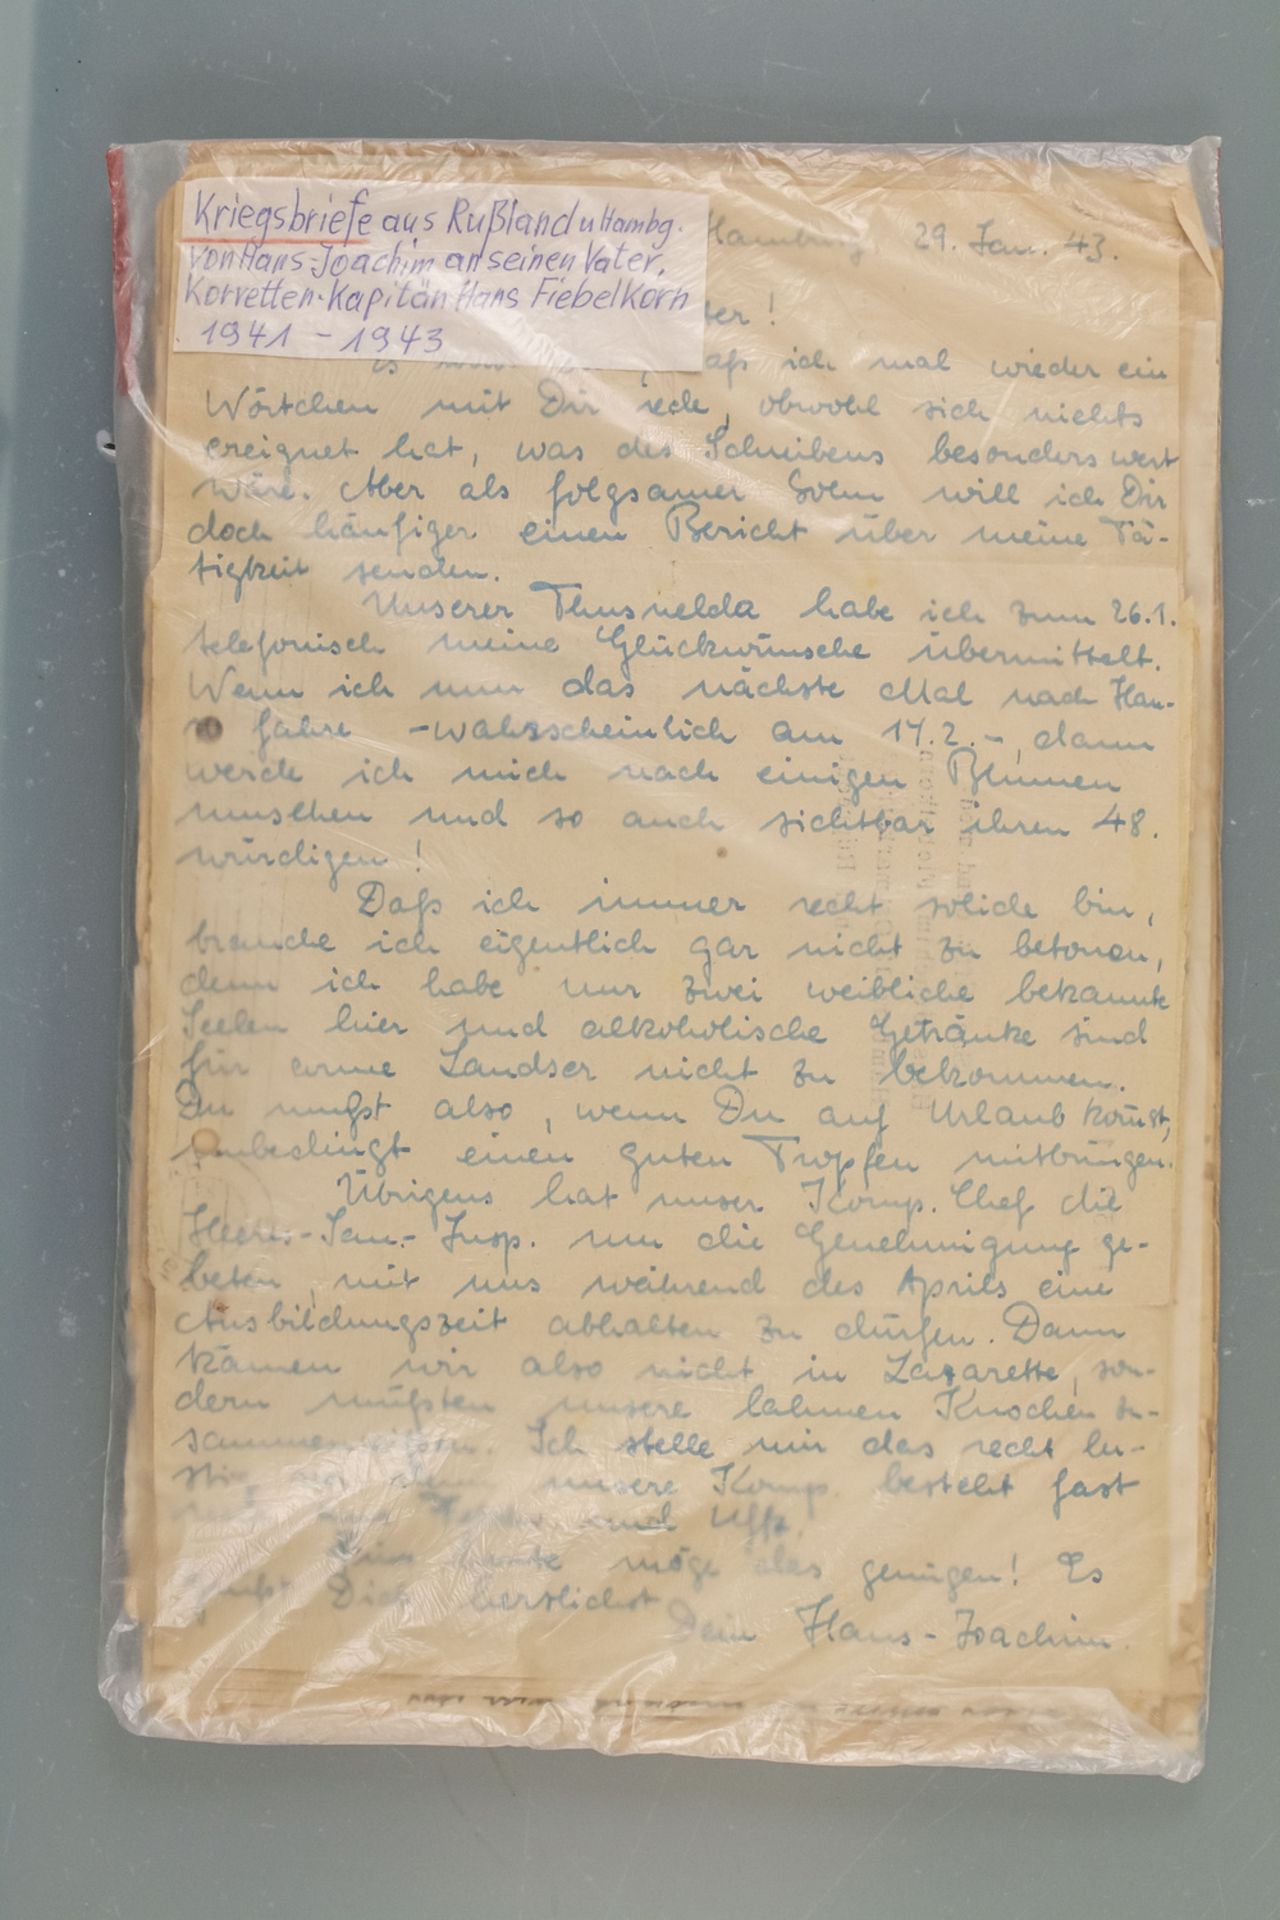 Kriegsbriefe aus Rußland u Hambg.
von Hans-Joachim an seinen Vater,
Korvetten-Kapitän Hans Fiebelkorn
1941 - 1943
Hamburg, 29. Jan. 43.
ter!
daß ich mal wieder ein
Wörtchen mit Dir rede, obwohl sich nichts
ereignet hat, was des Schreibens besonders wert
wäre. Aber als folgsamer Sohn will ich Dir
doch häufiger einen Bericht über meine Tä-
tigkeit senden.
Unserer Thusnelda habe ich zum 26.1.
telefonisch meine Glückwünsche übermittelt.
Wenn ich nun das nächste Mal nach Hau-
se fahre - wahrscheinlich am 17.2. -, dann
werde ich mich nach einigen Blumen
umsehen und so auch sichtbar ihren 48.
würdigen!
Daß ich immer recht solide bin,
brauche ich eigentlich gar nicht zu betonen,
denn ich habe nur zwei weibliche bekannte
Seelen hier und alkoholische Getränke sind
für arme Landser nicht zu bekommen.
Du mußt also, wenn Du auf Urlaub kom̄st,
unbedingt einen guten Tropfen mitbringen.
Übrigens hat unser Komp. Chef die
Heeres-San.-Insp. um die Genehmigung ge-
beten, mit uns während des Aprils eine
Ausbildungszeit abhalten zu dürfen. Dann
kämen wir also nicht in Lazarette, son-
dern müßten unsere lahmen Knochen zu-
sammenreißen. Ich stelle mir das recht lu-
stig vor, denn unsere Komp. besteht fast
und Uffz.
Für heute möge das genügen! Es
grüßt Dich herzlichst
Dein Hans-Joachim.